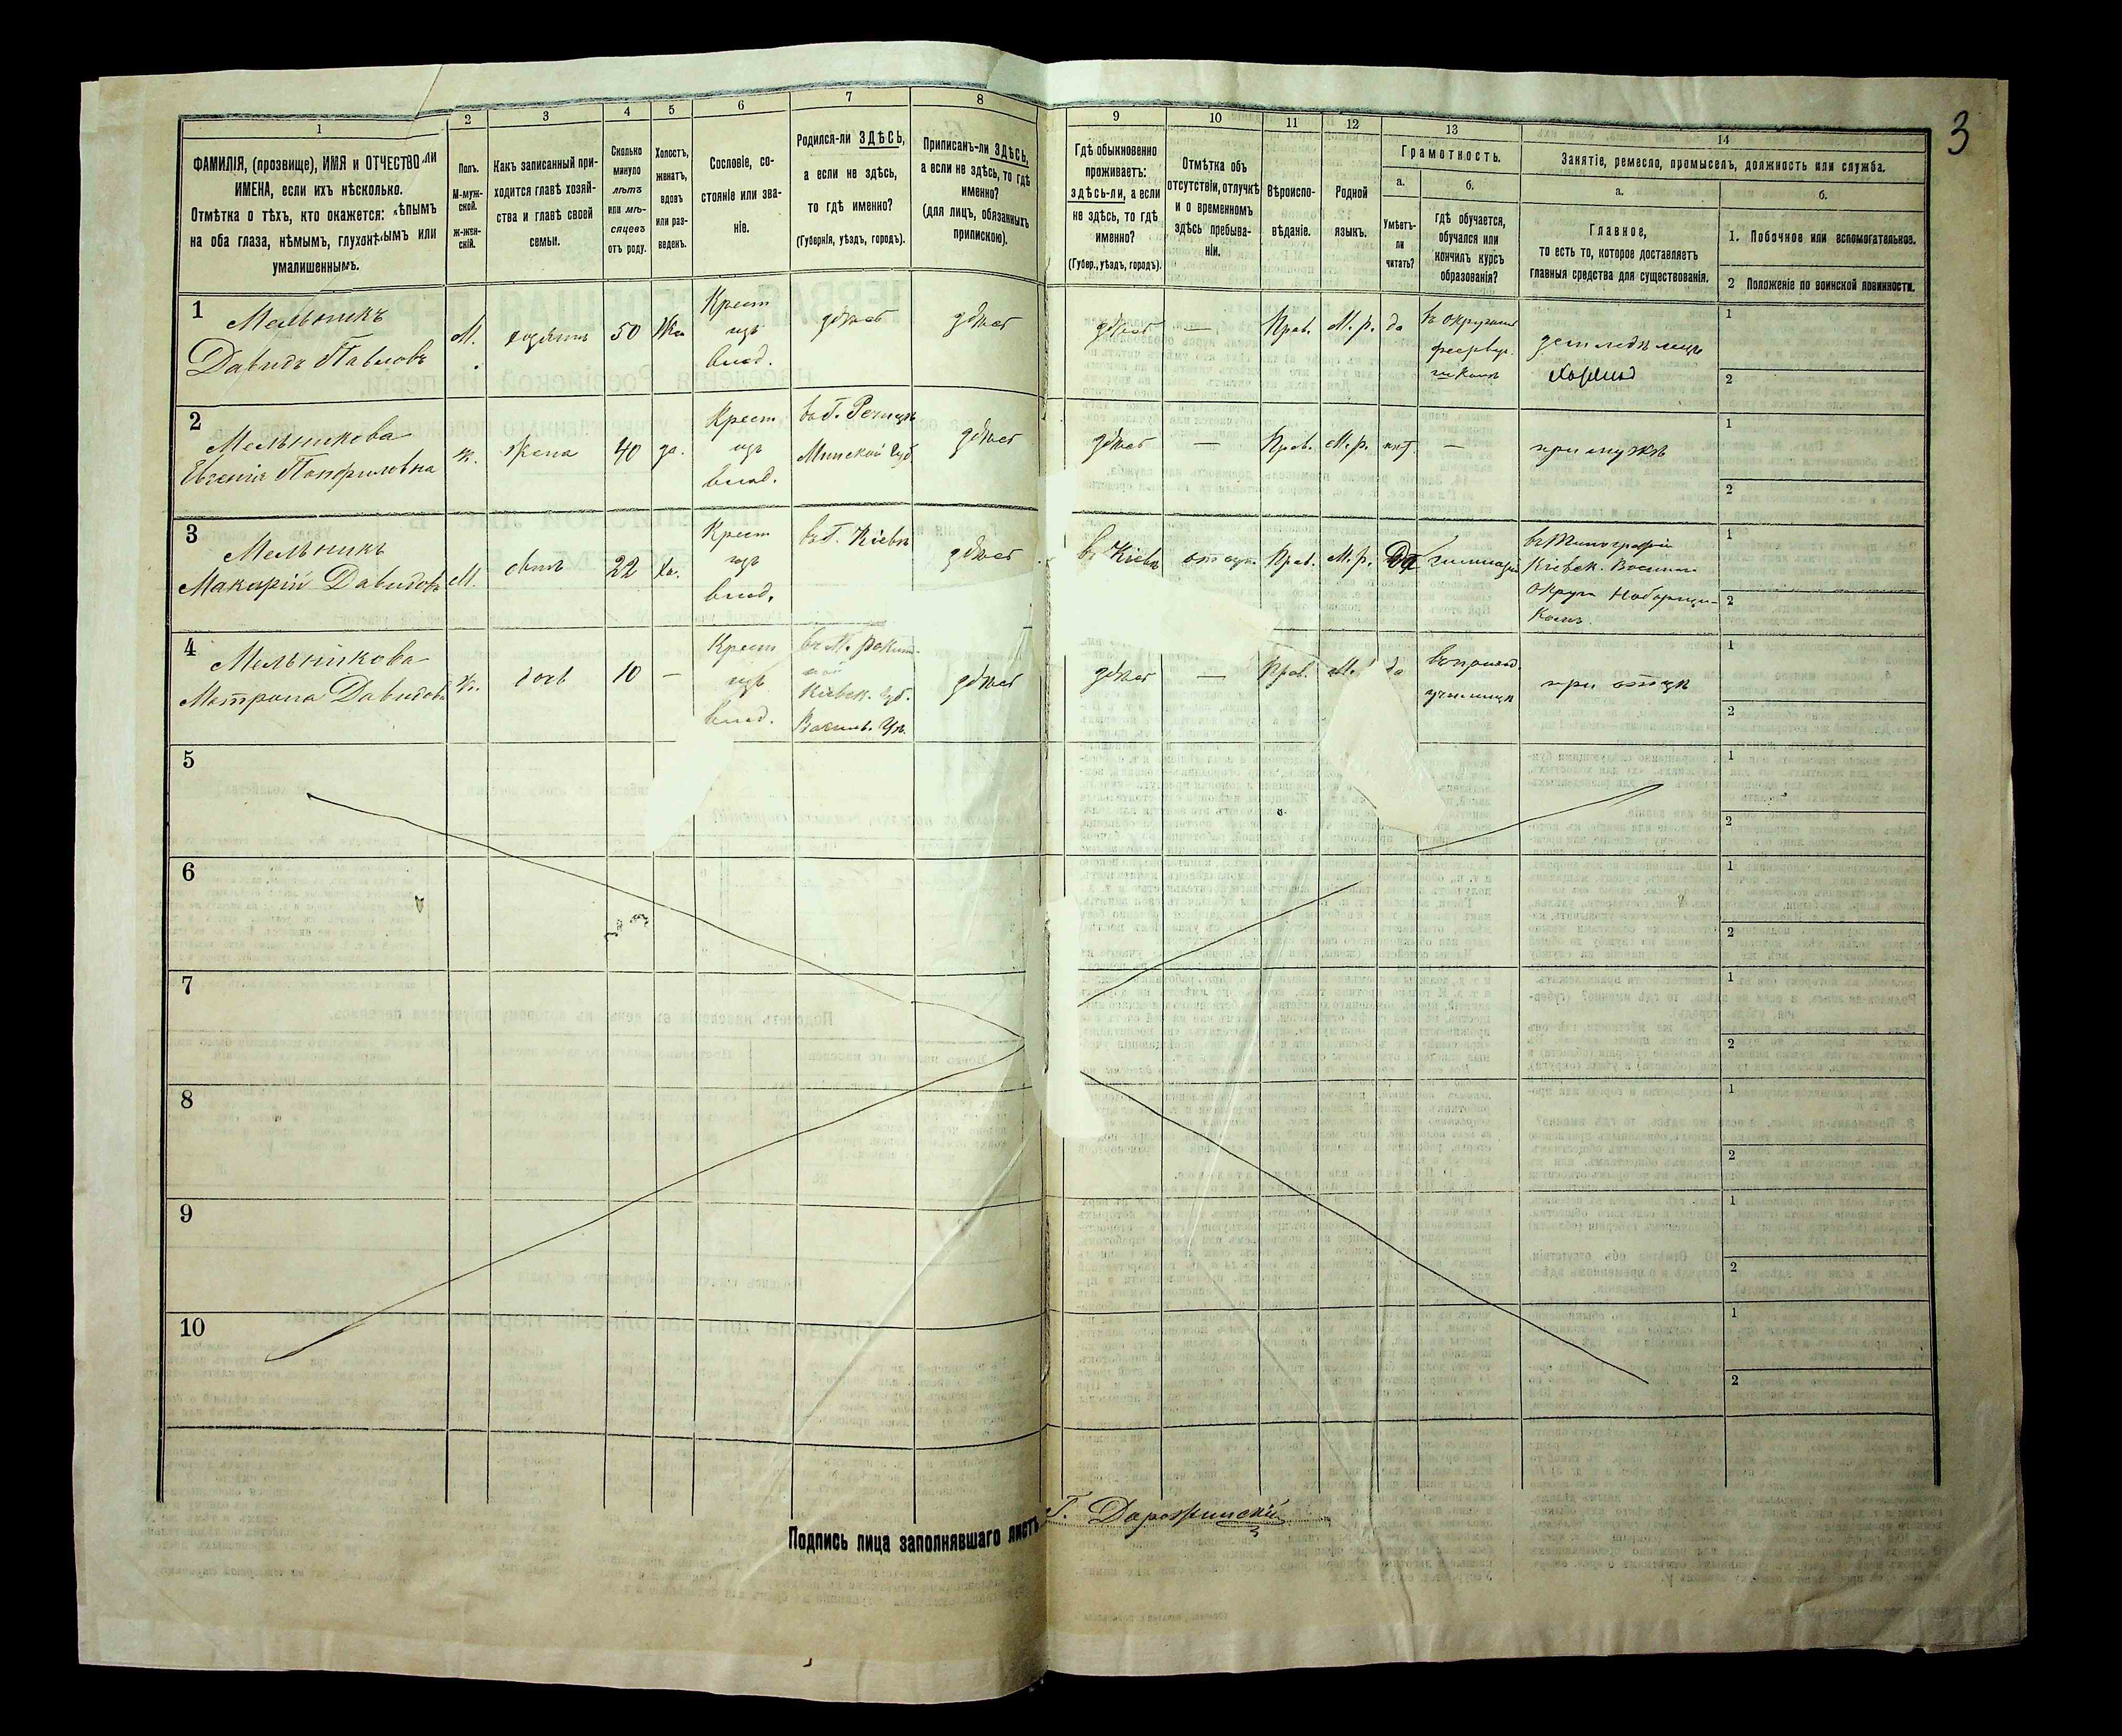 3
1
2
3
4
5
6
7
8
9
10
11
12
13
14
ФАМИЛІЯ, (прозвище), ИМЯ и ОТЧЕСТВО или
ИМЕНА, если ихъ нѣсколько.
Отмѣтка о тѣхъ, кто окажется: слѣпымъ
на оба глаза, нѣмымъ, глухонѣмымъ или
умалишеннымъ.
Полъ.
М-муж-
ской.
Ж-жен-
скій.
Какъ записанный при-
ходится главѣ хозяй-
ства и главѣ своей
семьи.
Сколько
минуло
лѣтъ
или мѣ-
сяцевъ
отъ роду.
Холостъ,
женатъ,
вдовъ
или раз-
веденъ.
Сословіе, со-
стояніе или зва-
ніе.
Родился-ли ЗДѢСЬ,
а если не здѣсь,
то гдѣ именно?
(Губернія, уѣздъ, городъ).
Приписанъ-ли ЗДѢСЬ,
а если не здѣсь, то гдѣ
именно?
(для лицъ, обязанныхъ
припискою).
Гдѣ обыкновенно
проживаетъ:
здѣсь-ли, а если
не здѣсь, то гдѣ
именно?
(Губер., уѣздъ, городъ).
Отмѣтка объ
отсутствіи, отлучкѣ
и о временномъ
здѣсь пребыва-
ніи.
Вѣроиспо-
вѣданіе.
Родной
языкъ.
Грамотность.
а.
Умѣетъ-
ли
читать?
б.
гдѣ обучается,
обучался или
кончилъ курсъ
образованія?
Занятіе, ремесло, промыселъ, должность или служба.
а.
Главное,
то есть то, которое доставляетъ
главныя средства для существованія.
б.
1. Побочное или вспомогательное.
2 Положеніе по воинской повинности.
1
Мельникъ
Давидъ Павловъ
М.
хозяинъ
50
Же.
Крест
изъ
влад.
здѣсь
здѣсь
здѣсь
—
Прав.
М. р.
да
школѣ
1
2
2
Мельникова
Евгенія Панфиловна
ж.
жена
40
за.
Крест
изъ
влад.
въ Г. Речицѣ
Минской Губ
здѣсь
здѣсь
—
Прав.
М. р.
нѣт.
—
при мужѣ
1
2
3
Мельникъ
Макарій Давидовъ
М.
сынъ
22
Хо.
Крест
изъ
влад.
въ Г. Кіевѣ
здѣсь
въ Кіевѣ
отсут.
Прав.
М. р.
Да
въ типографіи
Кіевск. Военнаго
округа Наборщи-
комъ.
1
2
4
Мельникова
Матрона Давидова
ж.
дочь
10
—
Крест
изъ
влад.
въ М. Рокит-
ной
Кіевск. губ.
Василь. Уѣ.
здѣсь
здѣсь
—
Прав.
М.
да
училищѣ
при отцѣ
1
2
5
1
2
6
1
2
7
1
2
8
1
2
9
1
2
10
1
2
Подпись лица заполнявшаго листъ
Г. Дорожинскій